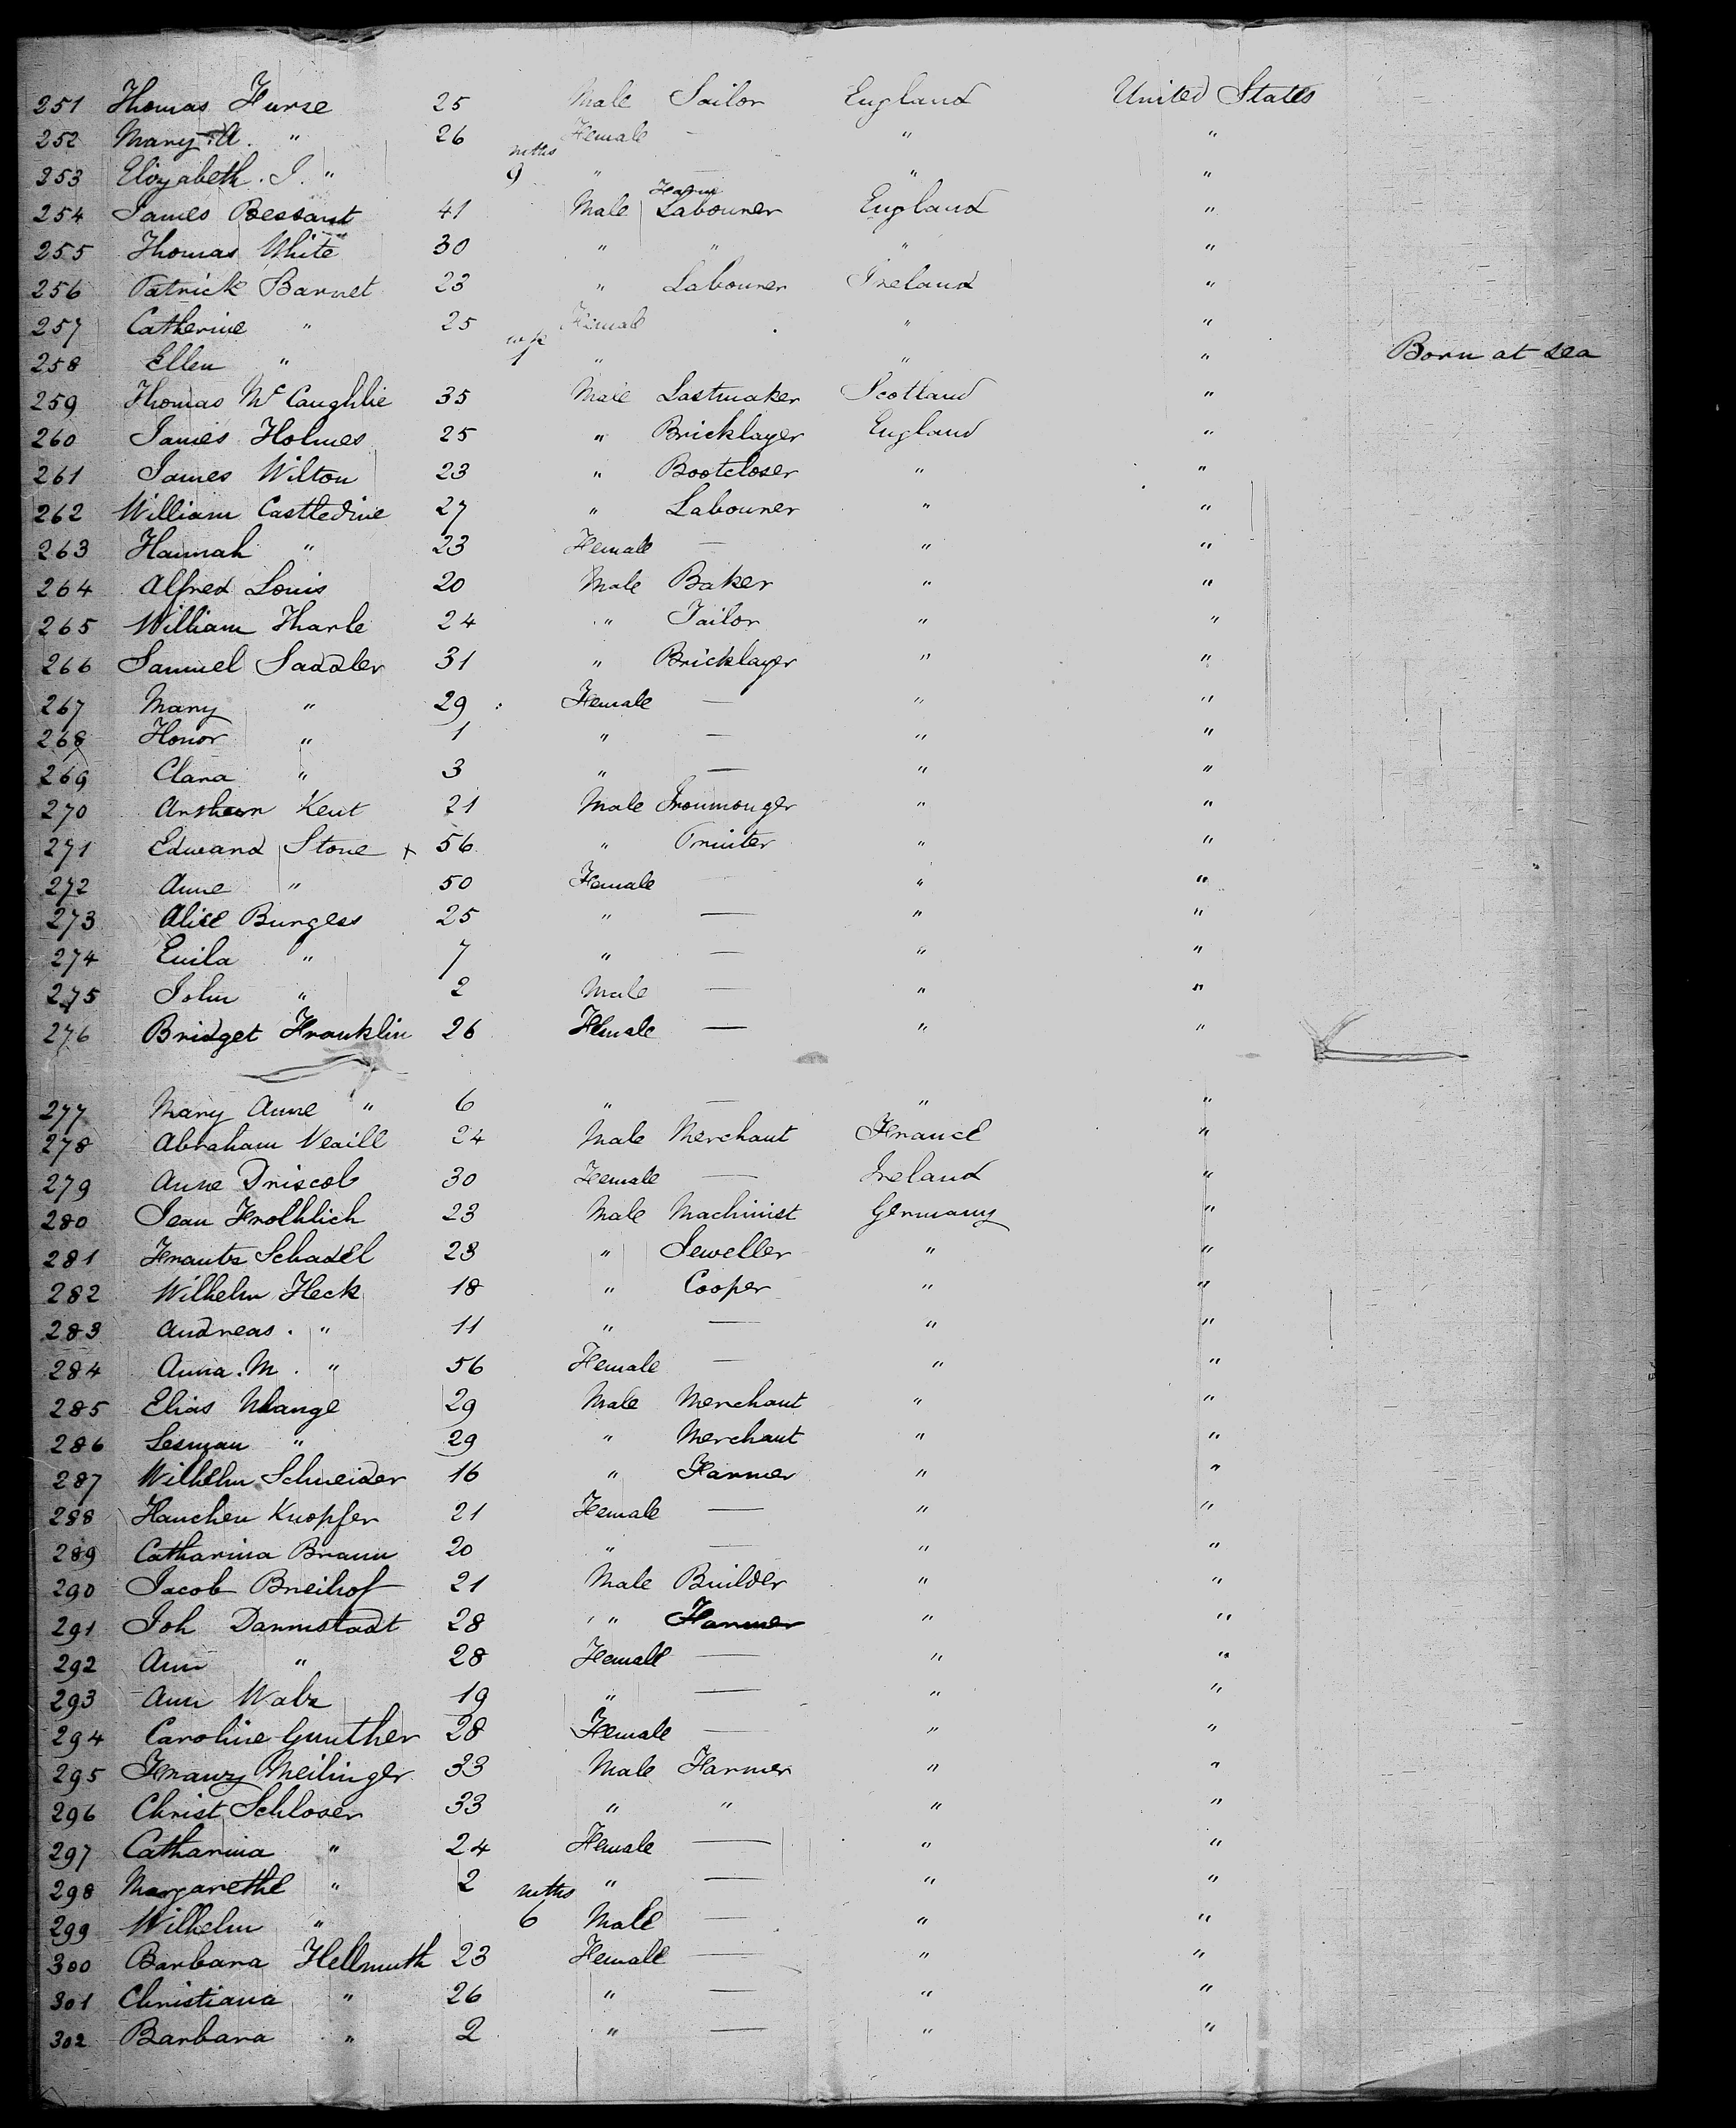 251 Thomas Furse 25 Male Sailor England United States
252 Mary A. " 26 Female — " "
253 Elizabeth. J. " mths 9 " — " "
254 James Bessant 41 Male Farm Labourer England "
255 Thomas White 30 " " " "
256 Patrick Barnet 23 " Labourer Ireland "
257 Catherine " 25 Female " "
258 Ellen " 1 " " " Born at sea
259 Thomas McCaughlie 35 Male Lastmaker Scotland "
260 James Holmes 25 " Bricklayer England "
261 James Wilton 23 " Bootcloser " "
262 William Castledine 27 " Labourer " "
263 Hannah " 23 Female — " "
264 Alfred Louis 20 Male Baker " "
265 William Tharle 24 " Tailor " "
266 Samuel Saddler 31 " Bricklayer " "
267 Mary " 29 Female — " "
268 Honor " 1 " — " "
269 Clara " 3 " — " "
270 Kent 21 Male Ironmonger " "
271 Edward Stone x 56 " Printer " "
272 Anne " 50 Female — " "
273 Alice Burgess 25 " — " "
274 Emila " 7 " — " "
275 John " 2 Male — " "
276 Bridget Franklin 26 Female — " "
277 Mary Anne " 6 " — " "
278 Abraham Veaill 24 Male Merchant France "
279 Anne Driscol 30 Female — Ireland "
280 Jean Frolhlich 23 Male Machinist Germany "
281 Frants Schadel 23 " Jeweller " "
282 Wilhelm Heck 18 " Cooper " "
283 Andreas. " 11 " — " "
284 Anna. M. " 56 Female — " "
285 Elias 29 Male Merchant " "
286 Lesman " 29 " Merchant " "
287 Wilhelm Schneider 16 " Farmer " "
288 Hanchen Knopfer 21 Female — " "
289 Catharina Braun 20 " — " "
290 Jacob Breihof 21 Male Builder " "
291 Joh Darmstadt 28 " Farmer " "
292 Ann " 28 Female — " "
293 Ann Walz 19 " — " "
294 Caroline Gunther 28 Female — " "
295 Franz Meilinger 33 Male Farmer " "
296 Christ Schloser 33 " " " "
297 Catharina " 24 Female — " "
298 Margarethe " 2 " — " "
299 Wilhelm " mths 6 Male — " "
300 Barbara Hellmuth 23 Female — " "
301 Christiana " 26 " — " "
302 Barbara " 2 " — " "